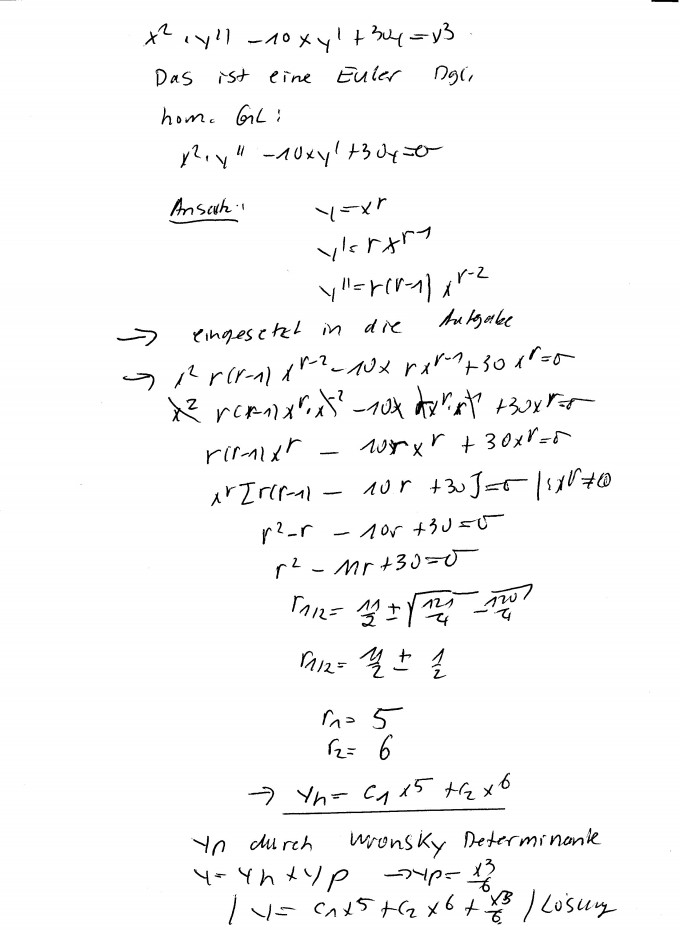 x² · y'' - 10xy' + 30y = x³
Das ist eine Euler Dgl.
hom. GL:
x² · y'' - 10xy' + 30y = 0
Ansatz: y = x^r
y' = r x^(r-1)
y'' = r(r-1) x^(r-2)
→ eingesetzt in die Aufgabe
→ x² r(r-1) x^(r-2) - 10x r x^(r-1) + 30 x^r = 0
x² r(r-1) x^r · x^-2 - 10x r x^r · x^-1 + 30x^r = 0
r(r-1) x^r - 10r x^r + 30x^r = 0
x^r [r(r-1) - 10r + 30] = 0 | : x^r ≠ 0
r² - r - 10r + 30 = 0
r² - 11r + 30 = 0
r1/2 = 11/2 ± √(121/4 - 120/4)
r1/2 = 11/2 ± 1/2
r1 = 5
r2 = 6
→ yh = C1 x^5 + C2 x^6
yp durch Wronsky Determinante
y = yh + yp → yp = x³/6
| y = C1 x^5 + C2 x^6 + x³/6 | Lösung